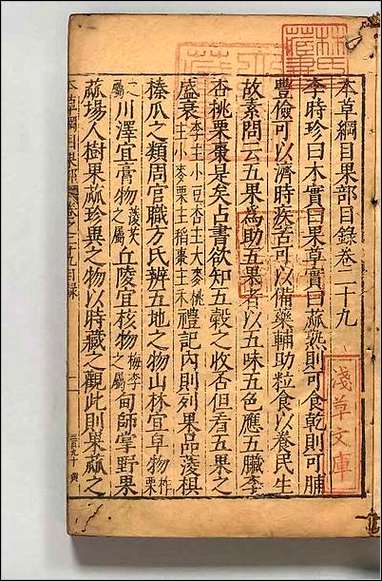 本草綱目果部目錄卷二十九
李時珍曰木實曰果草實曰蓏熟則可食乾則可脯
豐儉可以濟時疾苦可以備藥輔助粒食以養民生
故素問云五果為助五果者以五味五色應五臟李
杏桃栗棗是矣占書欲知五穀之收否但看五果之
盛衰李主小豆杏主大麥桃主小麥栗主稻棗主禾禮記內則列果品菱椇
榛瓜之類周官職方氏辨五地之物山林宜皁物柞栗
之屬川澤宜膏物菱芡之屬丘陵宜核物梅李之屬甸師掌野果
蓏場人樹果蓏珍異之物以時藏之觀此則果蓏之
本草綱目果部 卷之二十九目錄 一
淺草文庫